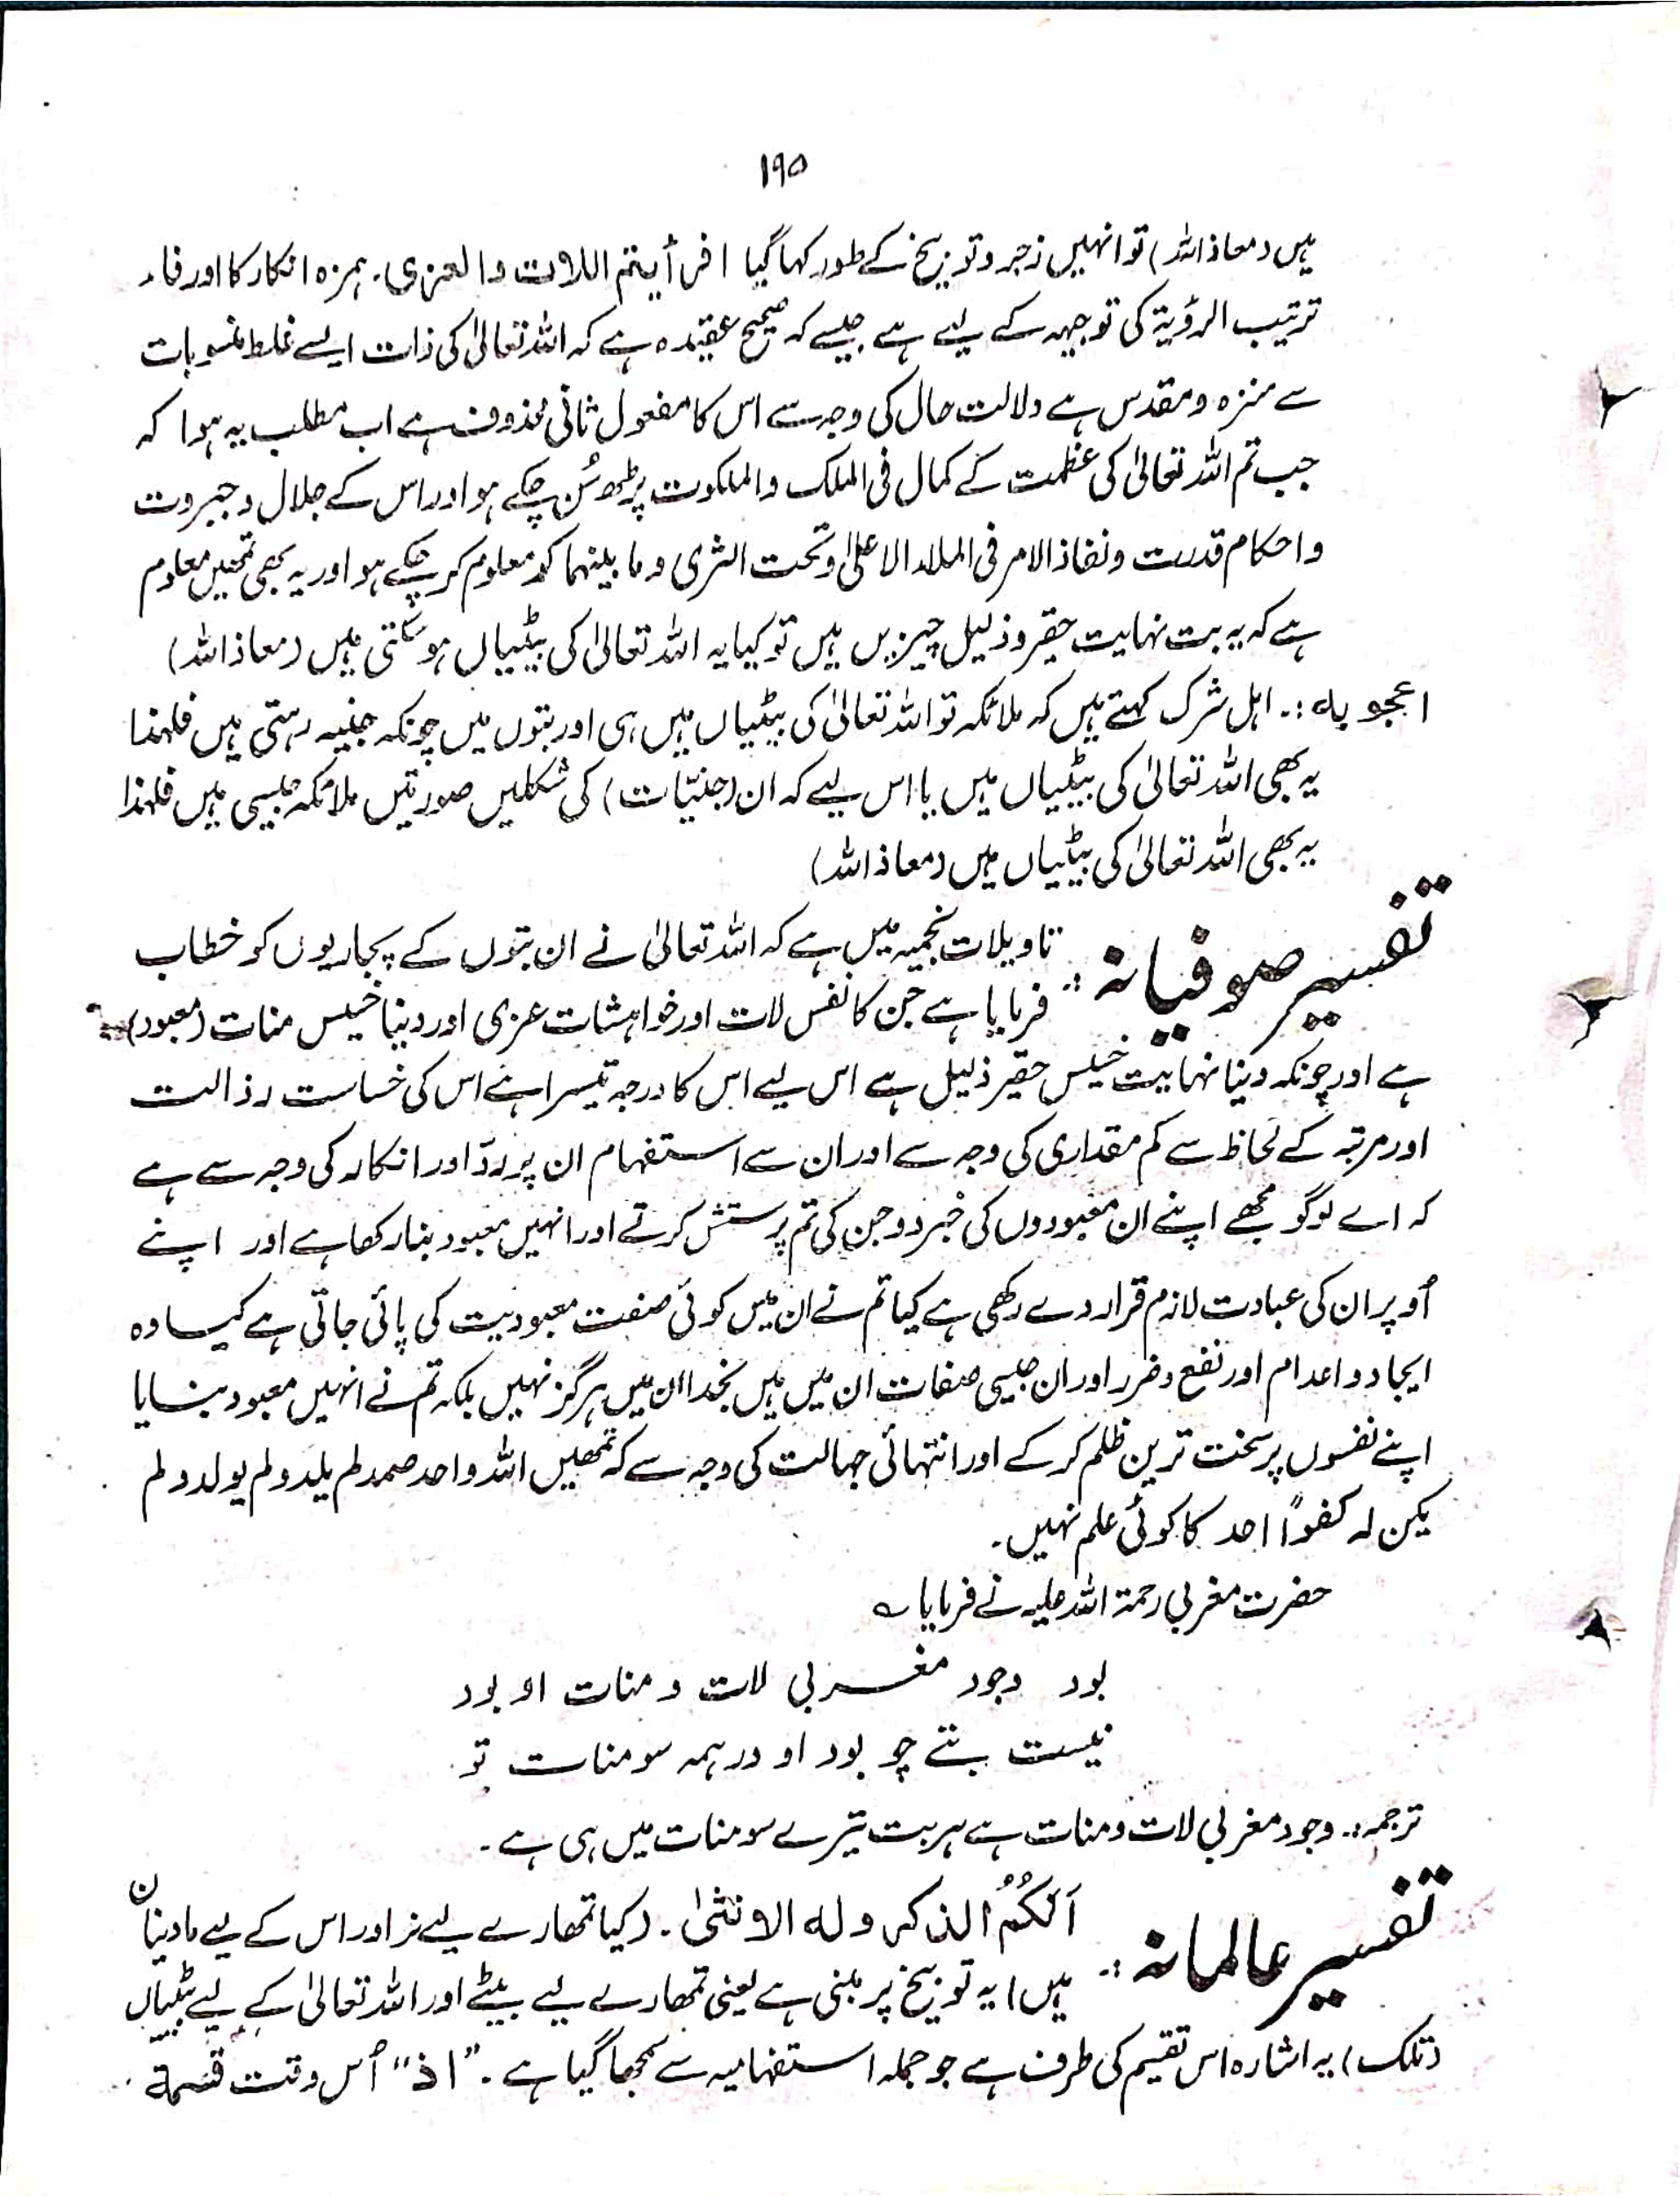 ۱۹۵
ہیں (معاذ اللہ) تو انہیں زجر و توبیخ کے طور کہا گیا افرأیتم اللات والعزی۔ ہمزہ انکار کا اور فاء
ترتیب الرؤیۃ کی توجیہہ کے لیے ہے جیسے کہ صحیح عقیدہ ہے کہ اللہ تعالیٰ کی ذات ایسے غلط منسوبات
سے منزہ و مقدس ہے دلالت حال کی وجہ سے اس کا مفعول ثانی محذوف ہے اب مطلب یہ ہوا کہ
جب تم اللہ تعالیٰ کی عظمت کے کمال فی الملک والملکوت پڑھ سُن چکے ہو اور اس کے جلال و جبروت
و احکام قدرت و نفاذ الامر فی الملاء الاعلیٰ و تحت الثری وما بینہما کو معلوم کر چکے ہو اور یہ بھی تمہیں معلوم
ہے کہ یہ بت نہایت حقیر و ذلیل چیزیں ہیں تو کیا یہ اللہ تعالیٰ کی بیٹیاں ہو سکتی ہیں (معاذ اللہ)
اعجوبہ :۔ اہل شرک کہتے ہیں کہ ملائکہ تو اللہ تعالیٰ کی بیٹیاں ہیں ہی اور بتوں میں چونکہ جنیہ رہتی ہیں فلہٰذا
یہ بھی اللہ تعالیٰ کی بیٹیاں ہیں یا اس لیے کہ ان (جنیّات) کی شکلیں صورتیں ملائکہ جیسی ہیں فلہٰذا
یہ بھی اللہ تعالیٰ کی بیٹیاں ہیں (معاذ اللہ)
تفسیر صوفیانہ :۔ تاویلات نجمیہ میں ہے کہ اللہ تعالیٰ نے ان بتوں کے پجاریوں کو خطاب
فرمایا ہے جن کا نفس لات اور خواہشات عزی اور دنیا خسیس منات (معبود)
ہے اور چونکہ دنیا نہایت خسیس حقیر ذلیل ہے اس لیے اس کا درجہ تیسرا ہے اس کی خساست رذالت
اور مرتبہ کے لحاظ سے کم مقداری کی وجہ سے اور ان سے استفہام ان پر ردّ اور انکار کی وجہ سے ہے
کہ اے لوگو مجھے اپنے ان معبودوں کی خبر دو جن کی تم پرستش کرتے اور انہیں معبود بنا رکھا ہے اور اپنے
اُوپر ان کی عبادت لازم قرار دے رکھی ہے کیا تم نے ان میں کوئی صفت معبودیت کی پائی جاتی ہے کیا وہ
ایجاد و اعدام اور نفع و ضرر اور ان جیسی صفات ان میں ہیں بخدا ان میں ہرگز نہیں بلکہ تم نے انہیں معبود بنایا
اپنے نفسوں پر سخت ترین ظلم کر کے اور انتہائی جہالت کی وجہ سے کہ تمھیں اللہ واحد صمد لم یلد ولم یولد ولم
یکن لہ کفواً احد کا کوئی علم نہیں۔
حضرت مغربی رحمۃ اللہ علیہ نے فرمایا ؎
بود وجود مغربی لات و منات او بود
نیست بتے چو بود او در ہمہ سومنات تو
ترجمہ :۔ وجود مغربی لات و منات ہے ہر بت تیرے سومنات میں ہی ہے۔
تفسیر عالمانہ :۔ اَلَكُمُ الذكر وله الانثىٰ۔ (کیا تمھارے لیے نر اور اس کے لیے مادیناں
ہیں) یہ توبیخ پر مبنی ہے یعنی تمھارے لیے بیٹے اور اللہ تعالیٰ کے لیے بیٹیاں
(تلک) یہ اشارہ اس تقسیم کی طرف ہے جو جملہ استفہامیہ سے سمجھا گیا ہے۔ "اذ" اُس وقت قسمة